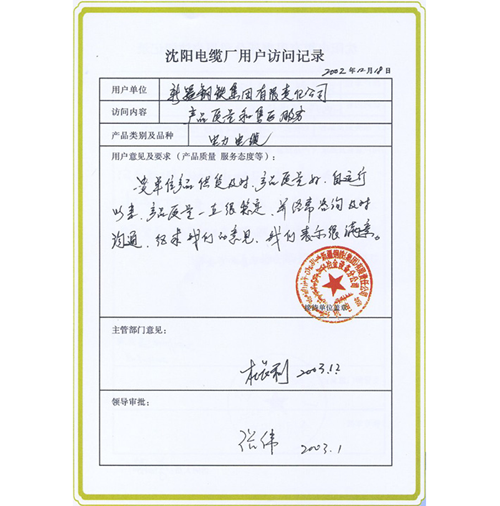 沈阳电缆厂用户访问记录
2002年12月18日
用户单位 新疆钢铁集团有限责任公司
访问内容 产品质量和售后服务
产品类别及品种 电力电缆
用户意见及要求（产品质量 服务态度等）：
贵单位产品供货及时，产品质量好，自运行
以来，产品质量一直很稳定，并经常咨询及时
沟通，征求我们的意见，我们表示很满意。
单位盖章
主管部门意见：
2003.12
领导审批：
张伟 2003.1